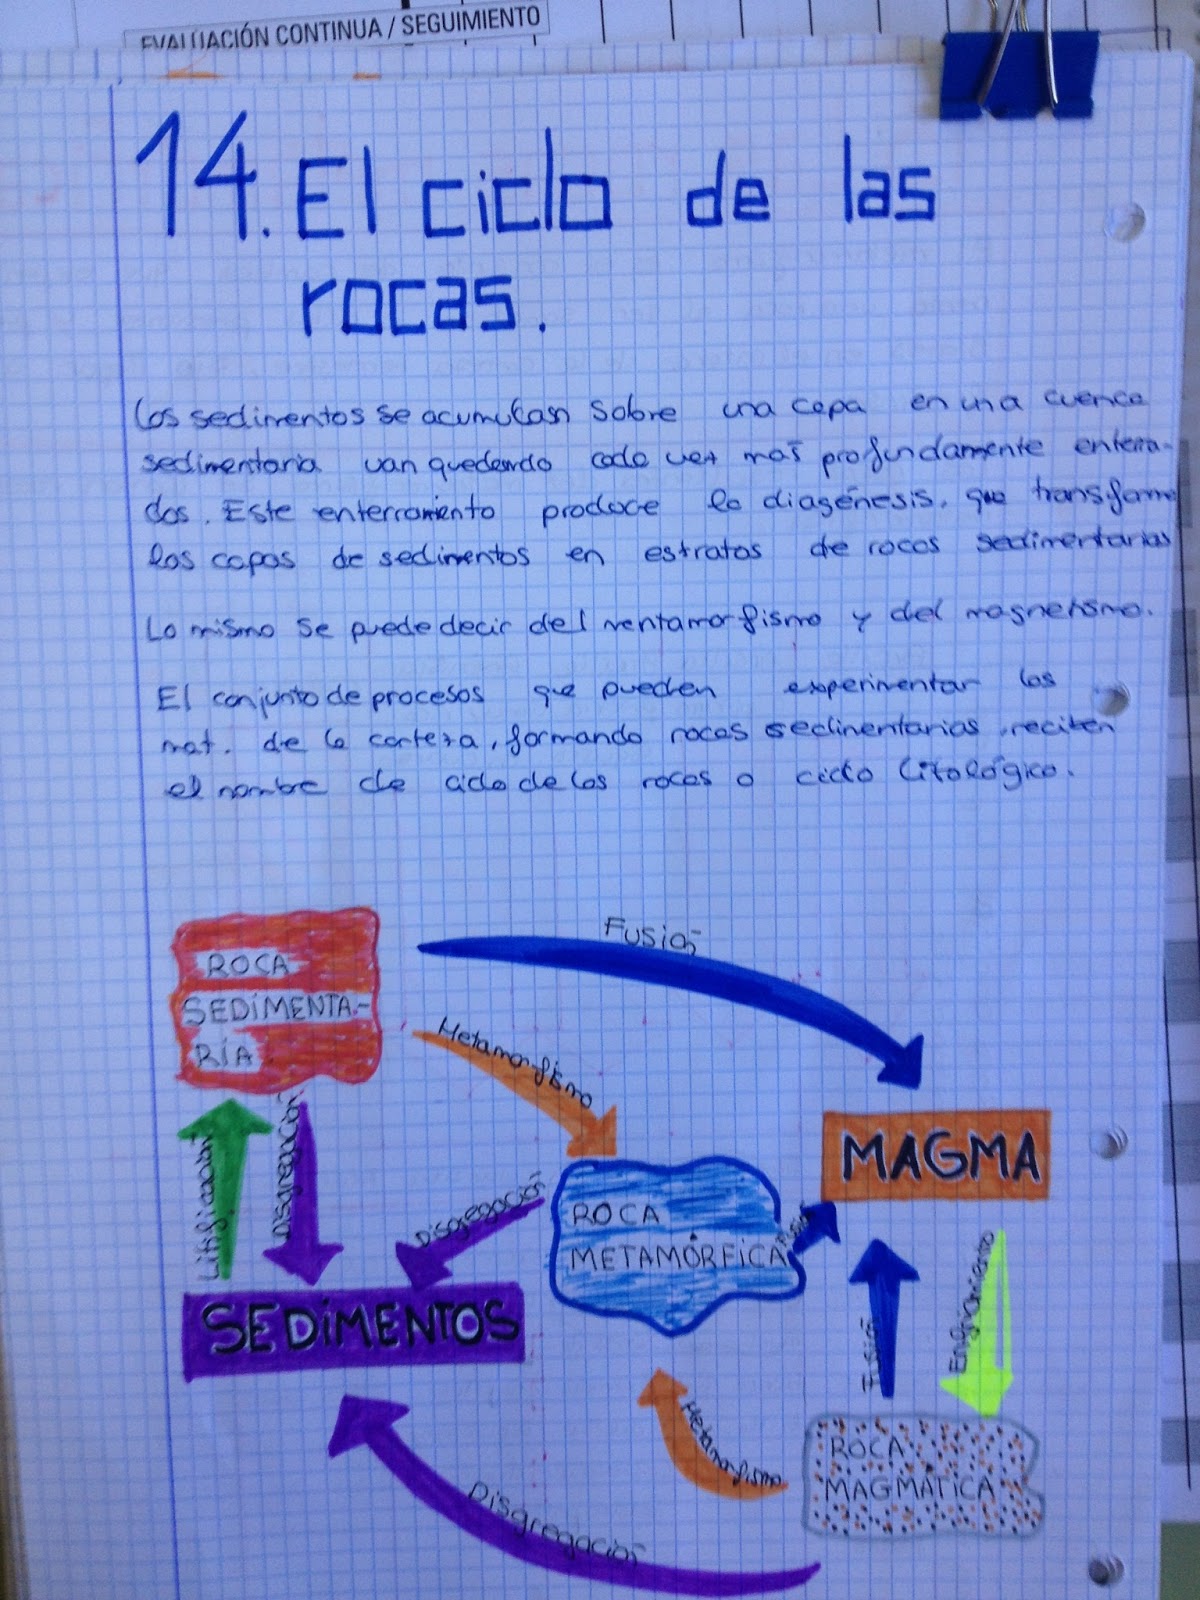 EVALUACIÓN CONTINUA / SEGUIMIENTO
14. El ciclo de las
rocas.
Los sedimentos se acumulan sobre una capa en una cuenca
sedimentaria van quedando cada vez más profundamente enterra-
dos. Este enterramiento produce la diagénesis, que transforma
las capas de sedimentos en estratos de rocas sedimentarias
Lo mismo se puede decir del mentamorfismo y del magnetismo.
El conjunto de procesos que pueden experimentar los
mat. de la corteza, formando rocas sedimentarias, reciben
el nombre de ciclo de las rocas o ciclo litológico.
Fusión
ROCA
SEDIMENTA-
RIA
Metamorfismo
MAGMA
Litificación
Disgregación
Disgregación
ROCA
METAMÓRFICA
Fusión
SEDIMENTOS
Fusión
Enfriamiento
Metamorfismo
ROCA
MAGMÁTICA
Disgregación